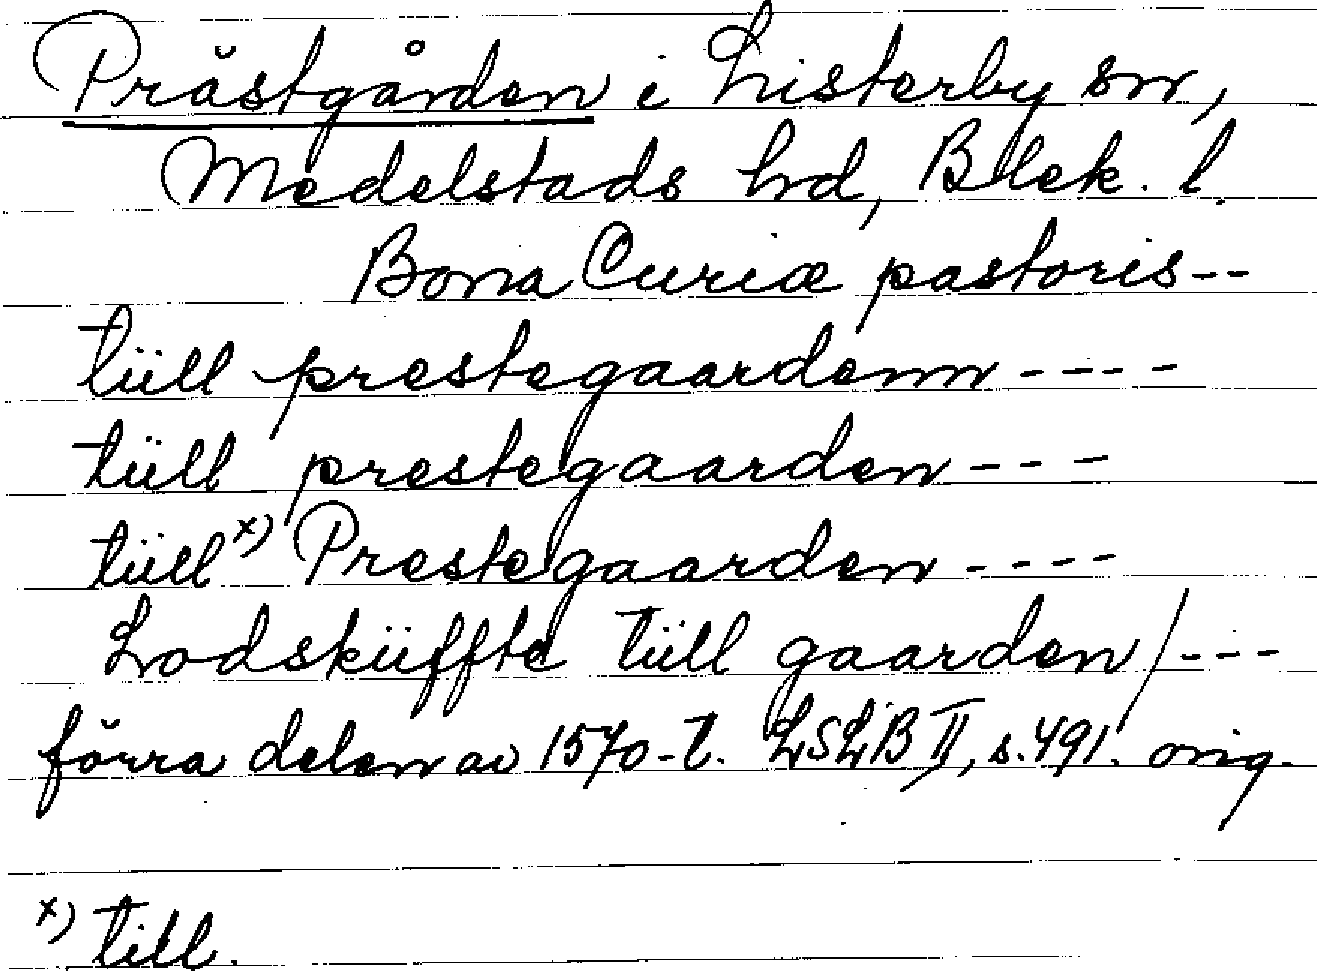 Prästgården i Listerby sn,
Medelstads hd, Blek. l.
Bona Curiæ pastoris--
tüll prestegaardenn ----
tüll prestegaarden ---
tüll x) Prestegaarden ----
Lodsküffte tüll gaarden/---
förra delen av 1570-t. LSLB II, s. 491. orig.
x) till.